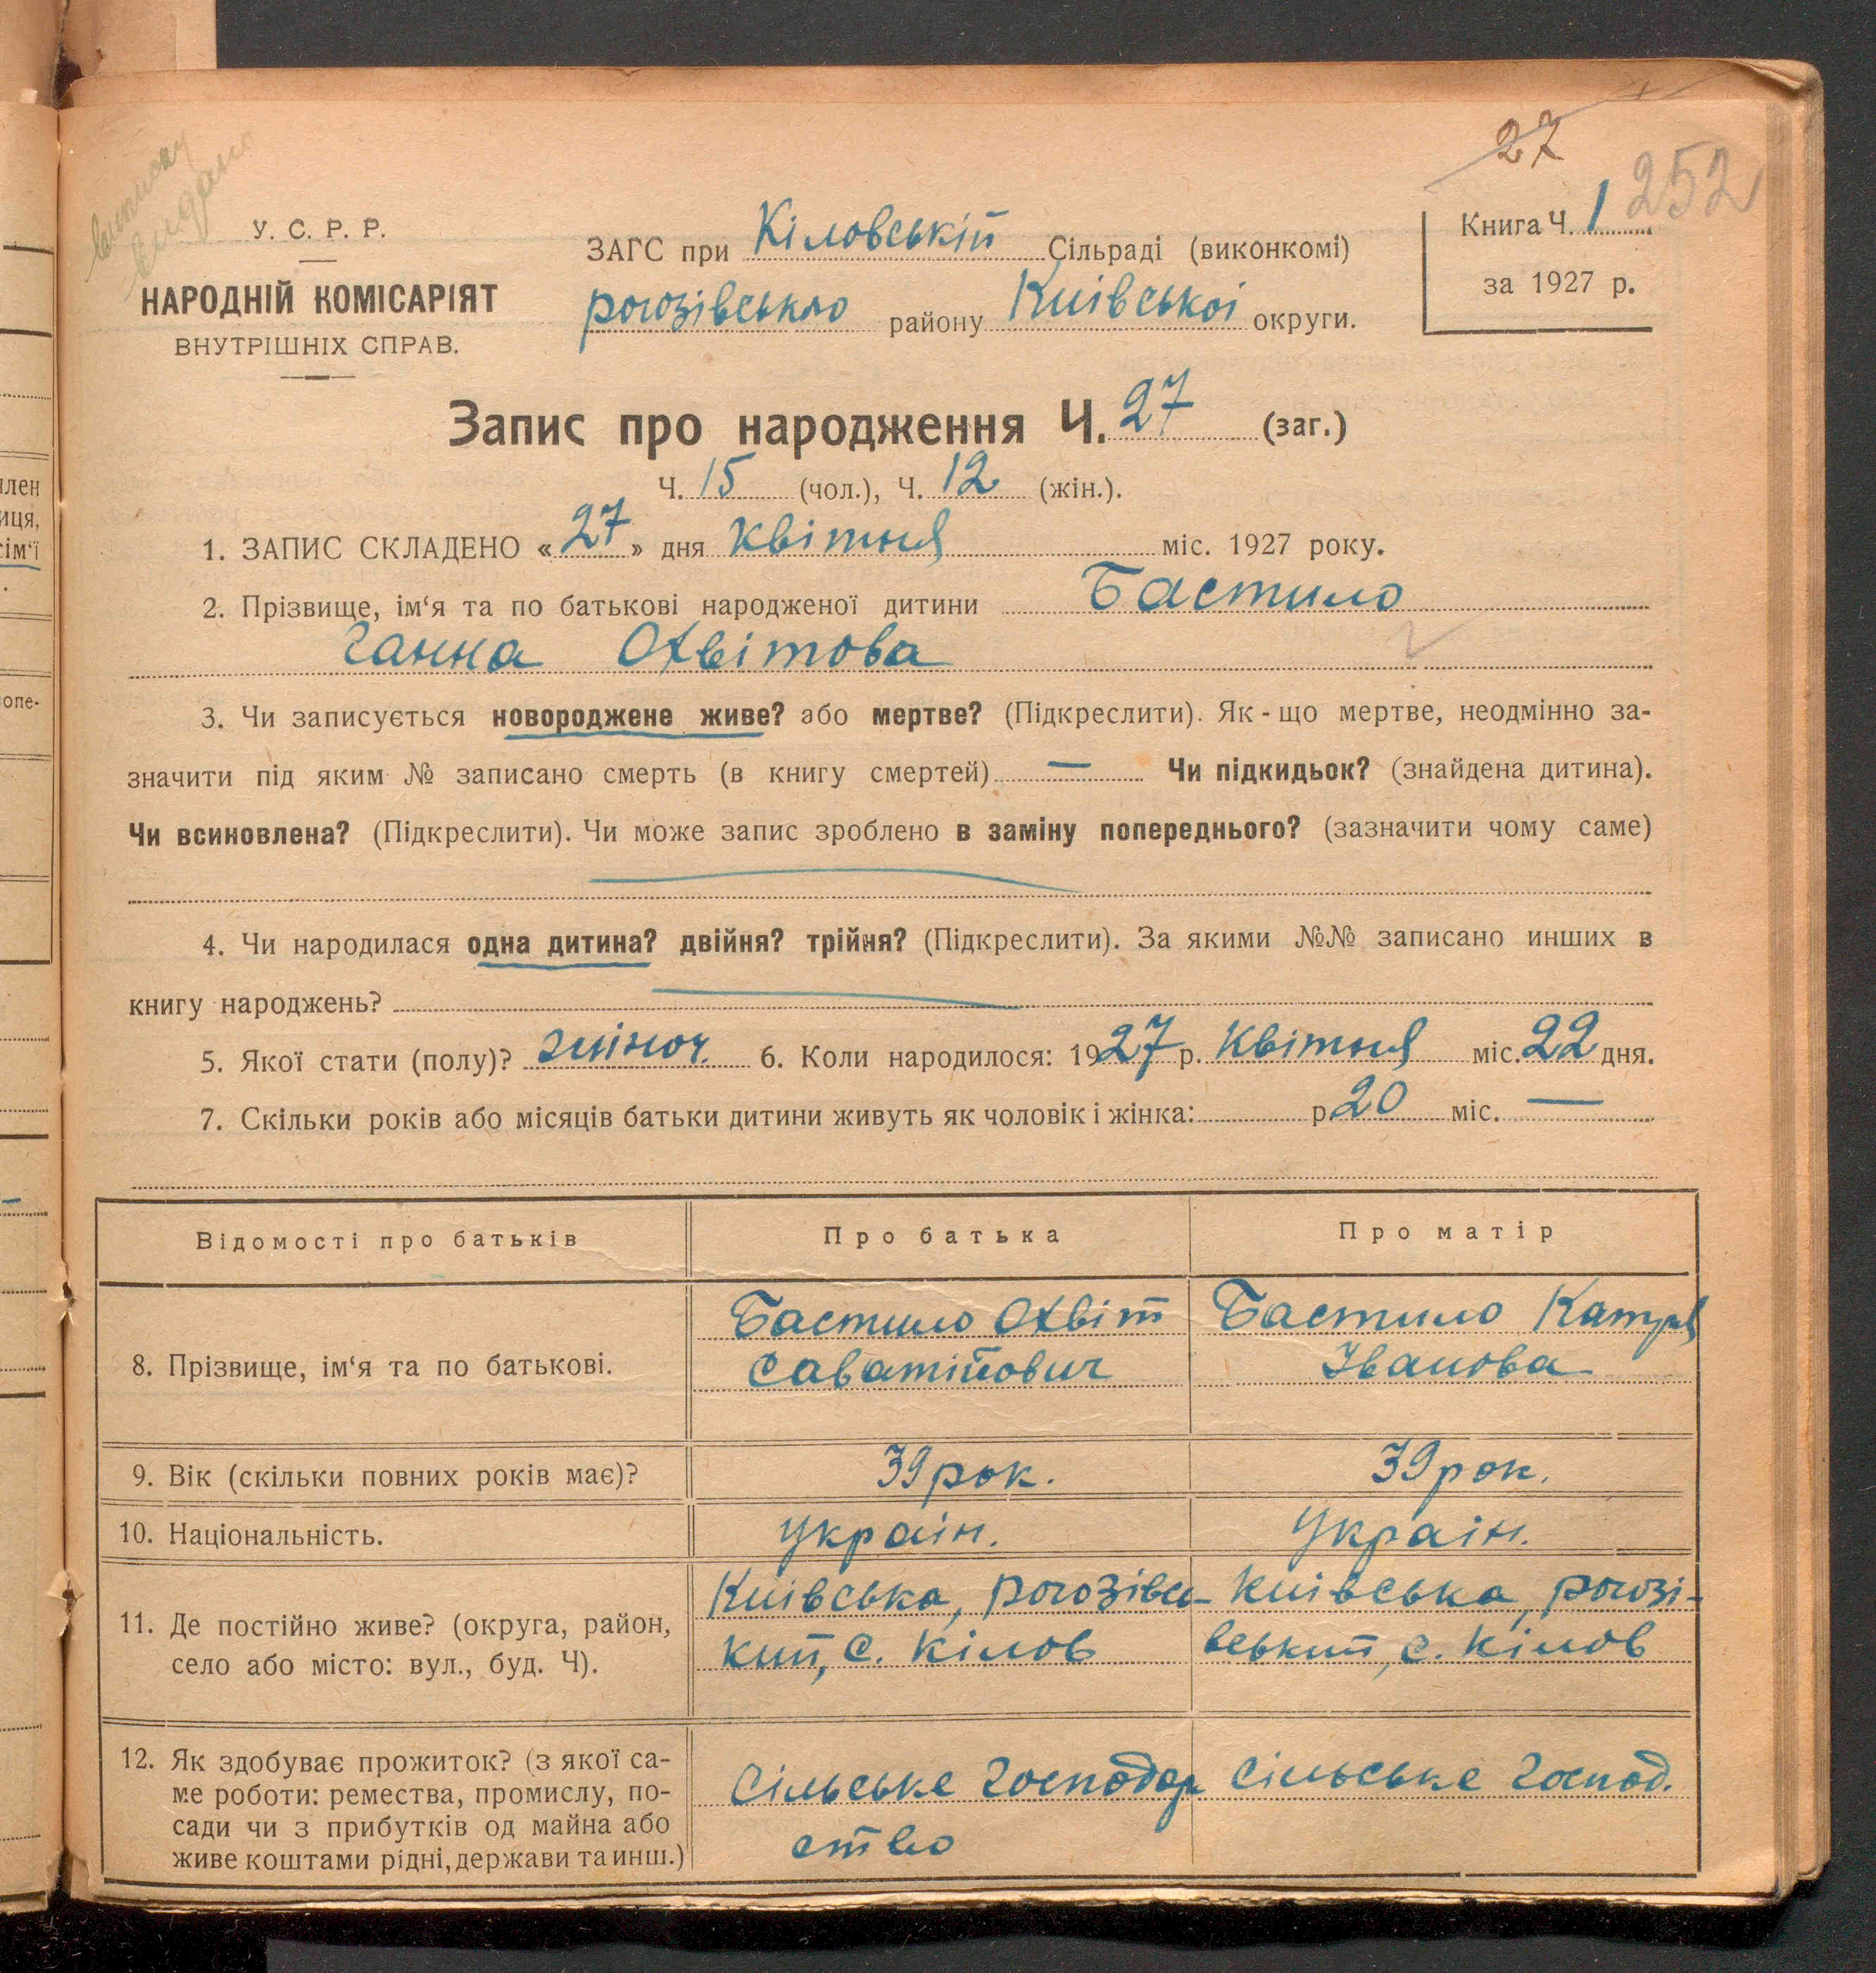 27
252
виписку
видано
У. С. Р. Р.
НАРОДНІЙ КОМІСАРІЯТ
ВНУТРІШНІХ СПРАВ.
ЗАГС при Кіловській Сільраді (виконкомі)
рогозівсько району Київської округи.
Книга Ч. 1
за 1927 р.
Запис про народження Ч. 27 (заг.)
Ч. 15 (чол.), Ч. 12 (жін.).
1. ЗАПИС СКЛАДЕНО «27» дня квітня міс. 1927 року.
2. Прізвище, ім‘я та по батькові народженої дитини Бастило
Ганна Охвітова
3. Чи записується новороджене живе? або мертве? (Підкреслити). Як-що мертве, неодмінно за-
значити під яким № записано смерть (в книгу смертей) — Чи підкидьок? (знайдена дитина).
Чи всиновлена? (Підкреслити). Чи може запис зроблено в заміну попереднього? (зазначити чому саме)
4. Чи народилася одна дитина? двійня? трійня? (Підкреслити). За якими №№ записано инших в
книгу народжень?
5. Якої стати (полу)? жіноч. 6. Коли народилося: 1927 р. Квітня міс. 22 дня.
7. Скільки років або місяців батьки дитини живуть як чоловік і жінка: р. 20 міс. —
Відомості про батьків Про батька Про матір
8. Прізвище, ім‘я та по батькові.
Бастило Охвіт
Саватійович
Бастило Катря
Іванова
9. Вік (скільки повних років має)? 39 рок. 39 рок.
10. Національність. Україн. Україн.
11. Де постійно живе? (округа, район,
село або місто: вул., буд. Ч).
Київська, рогозівсь-
кий, с. Кілов
Київська, рогозі-
вський, с. Кілов
12. Як здобуває прожиток? (з якої са-
ме роботи: ремества, промислу, по-
сади чи з прибутків од майна або
живе коштами рідні, держави та инш.)
Сільське господар
ство
Сільське господ.
лен
иця,
сім‘ї
опе-